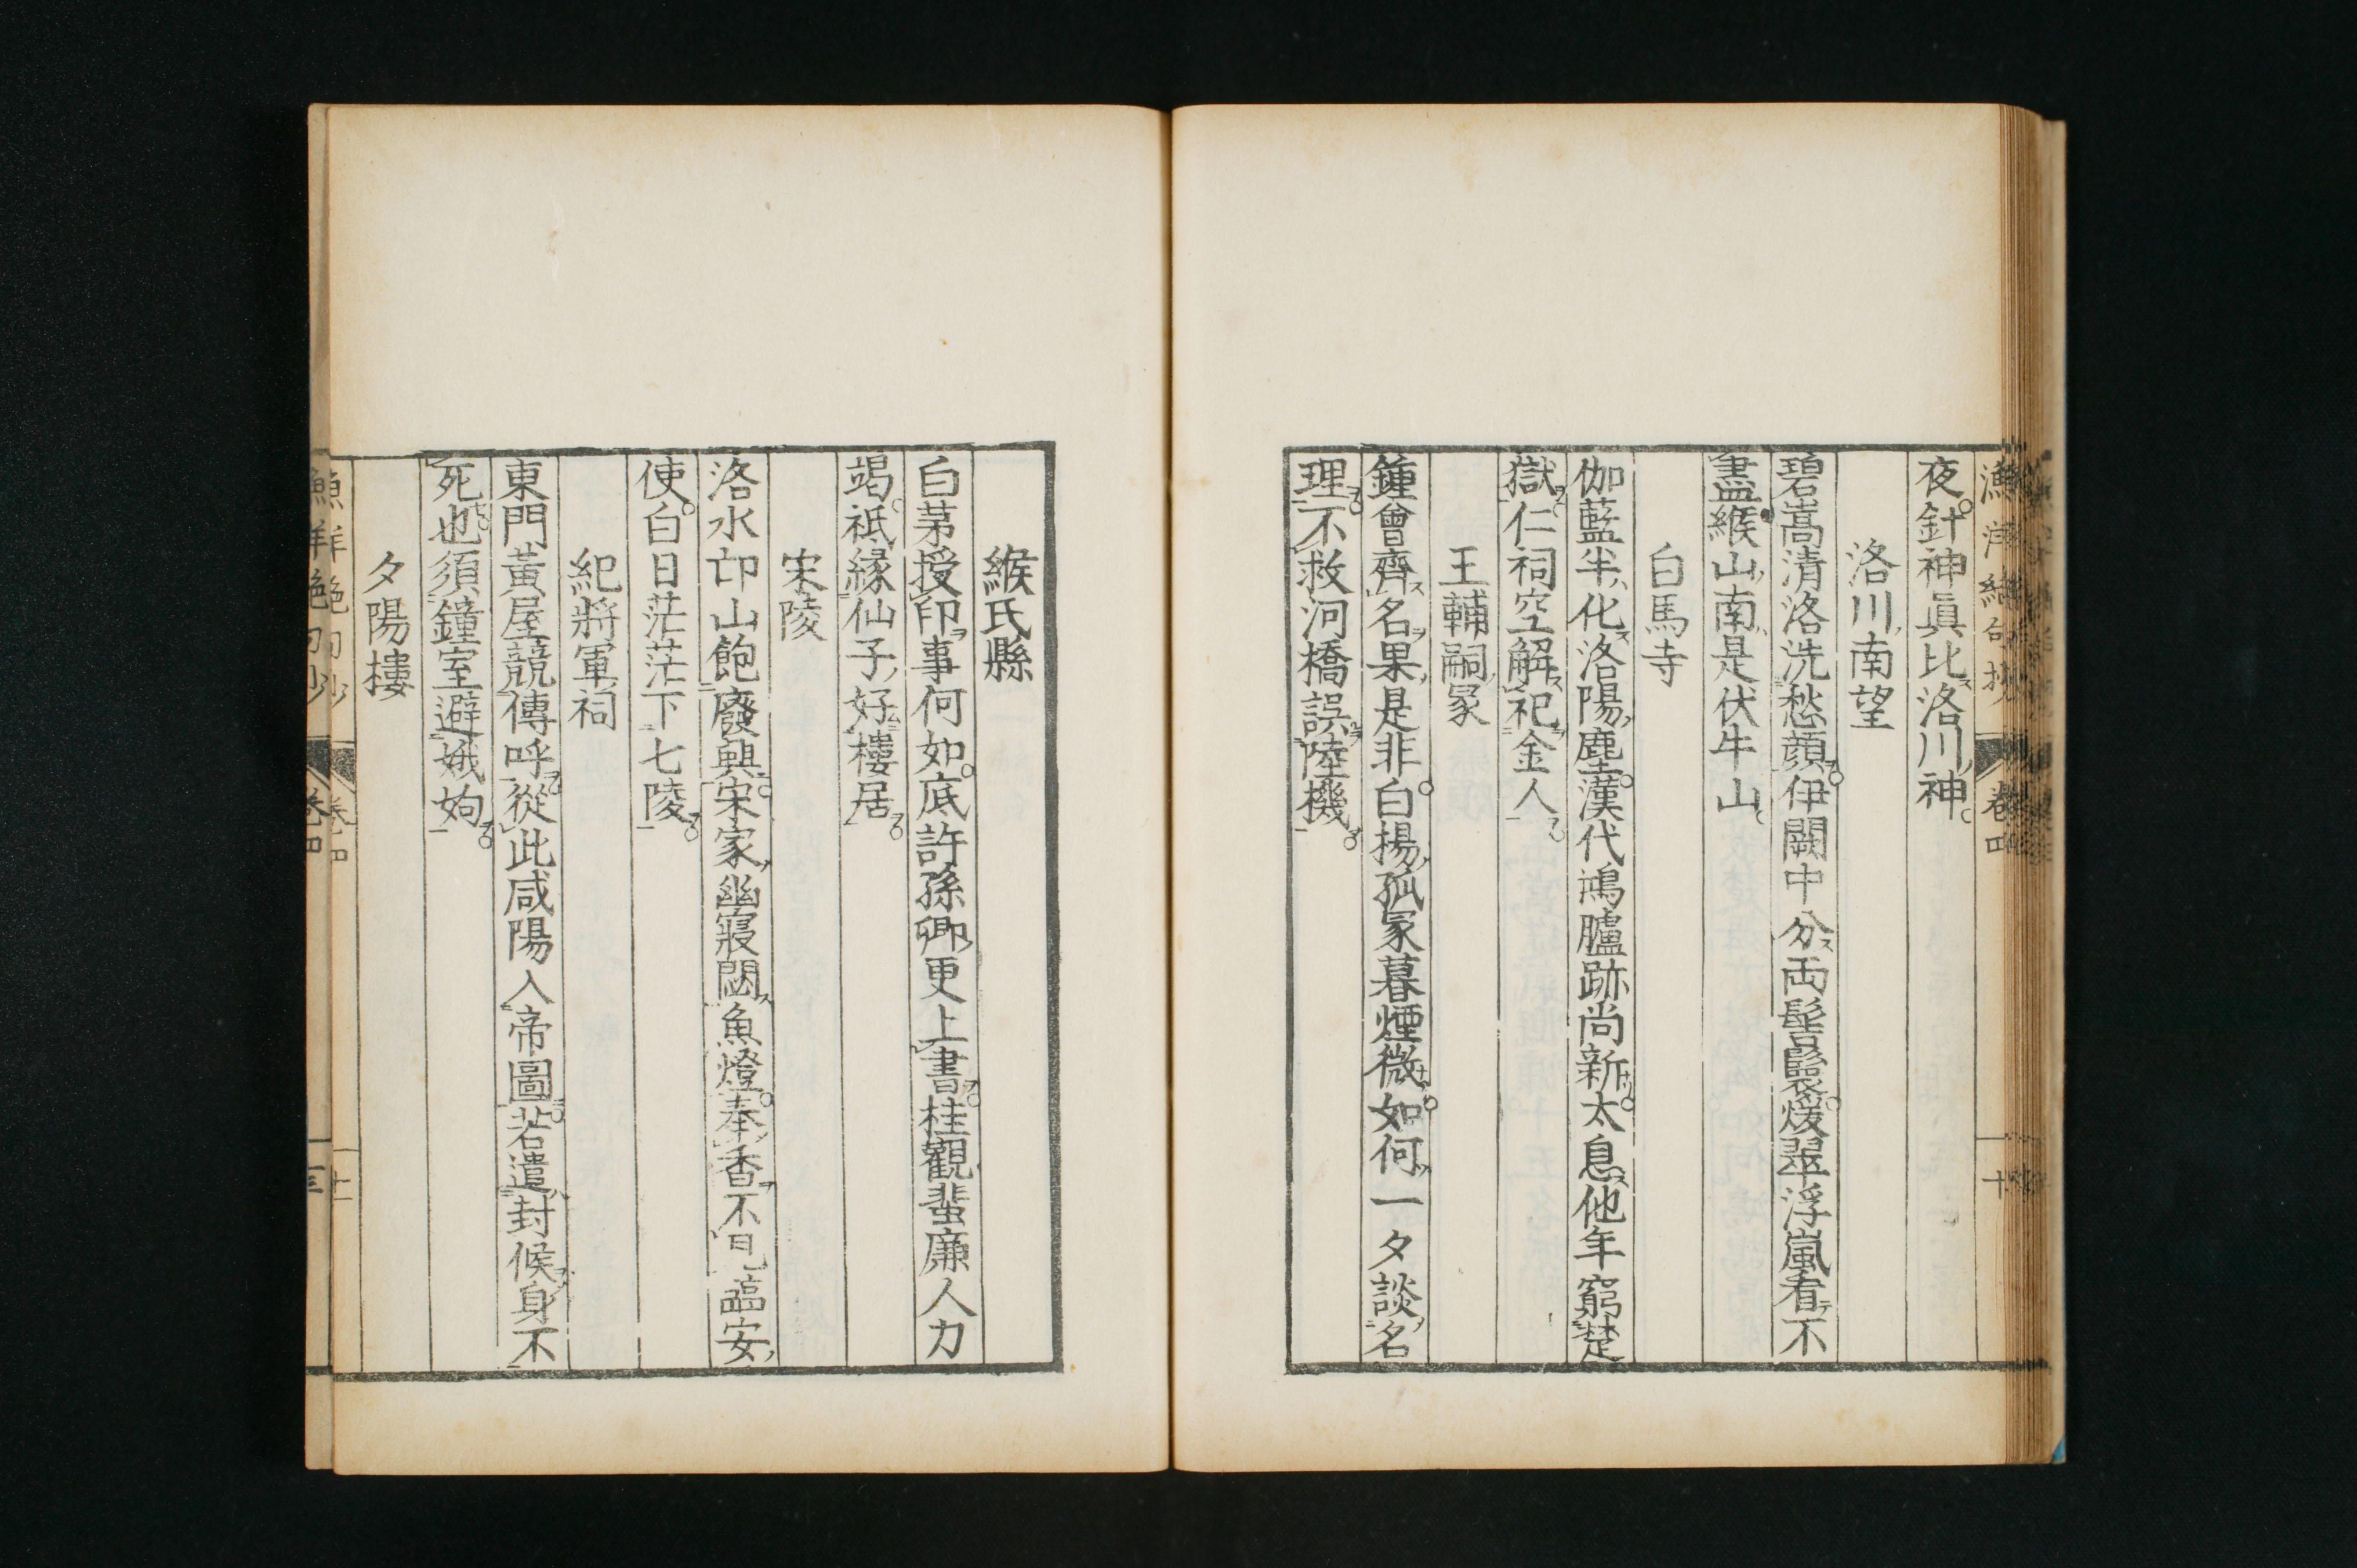 漁洋絶句抄 卷四 十
夜針神眞比洛川神
洛川南望
碧嵩清洛洗愁顔伊闕中分両髻鬟煖翠浮嵐看不
盡緱山南是伏牛山
白馬寺
伽藍半化洛陽塵漢代鴻臚跡尚新太息他年窮楚
獄仁祠空解祀金人
王輔嗣冢
鍾會齊名果是非白楊孤冢暮煙微如何一夕談名
理不救河橋誤陸機
緱氏縣
白茅授印事何如底許孫卿更上書桂觀蜚廉人力
竭祇縁仙子好樓居
宋陵
洛水卬山飽廢興宋家幽寢閟魚燈奉香不見臨安
使白日茫茫下七陵
紀將軍祠
東門黃屋競傳呼從此咸陽入帝圖若遣封候身不
死也須鐘室避娥姁
夕陽樓
漁洋絶句抄 卷四 十一